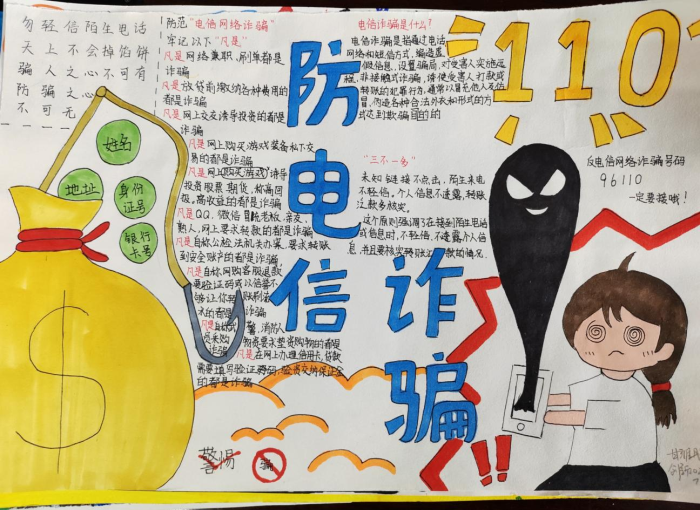 匆轻信陌生电话
天上不会掉馅饼
骗人之心不可有
防骗之心
不可无
防范"电信网络诈骗"
牢记以下"凡是"
凡是网络兼职、刷单都是
诈骗
凡是放贷前缴纳各种费用的
都是诈骗
凡是网上交友诱导投资的都是
诈骗
凡是网上购买游戏装备私下交
易的都是诈骗
凡是网上购买游戏,诱导
投资股票期货,称高回
报,高收益的都是诈骗
凡是QQ,微信冒充老板,亲友,
熟人,网上要求转款的都是诈骗
凡是自称公检法机关办案,要求转账
到安全账户的都是诈骗
凡是自称网购客服退款,
要验证码或以信誉不
够让你转账刷流
水的都是诈骗
凡是自称
警,消防人
员采购
物资要求垫资购物的都是
诈骗
凡是在网上办理信用卡,贷款
需要填写验证码,验资交纳保证金
的都是诈骗
防电信诈骗
电信诈骗是什么?
电信诈骗是指通过电话
网络和短信方式,编造虚
假信息,设置骗局,对受害人实施远
程,非接触式诈骗,诱使受害人打款或
转账的犯罪行为,通常以冒充他人及仿
冒,伪造各种合法外衣和形式的方
式达到欺骗目的
"三不一多"
未知链接不点击,陌生来电
不轻信,个人信息不透露,转账
汇款多核实。
这个原则强调了在接到陌生电话
或信息时,不轻信,不透露个人信
息,并且要核实转账汇款的情况.
110
反电信网络诈骗号码
96110
一定要接哦!
姓名
地址
身份
证号
银行
卡号
$
警惕
骗
!!